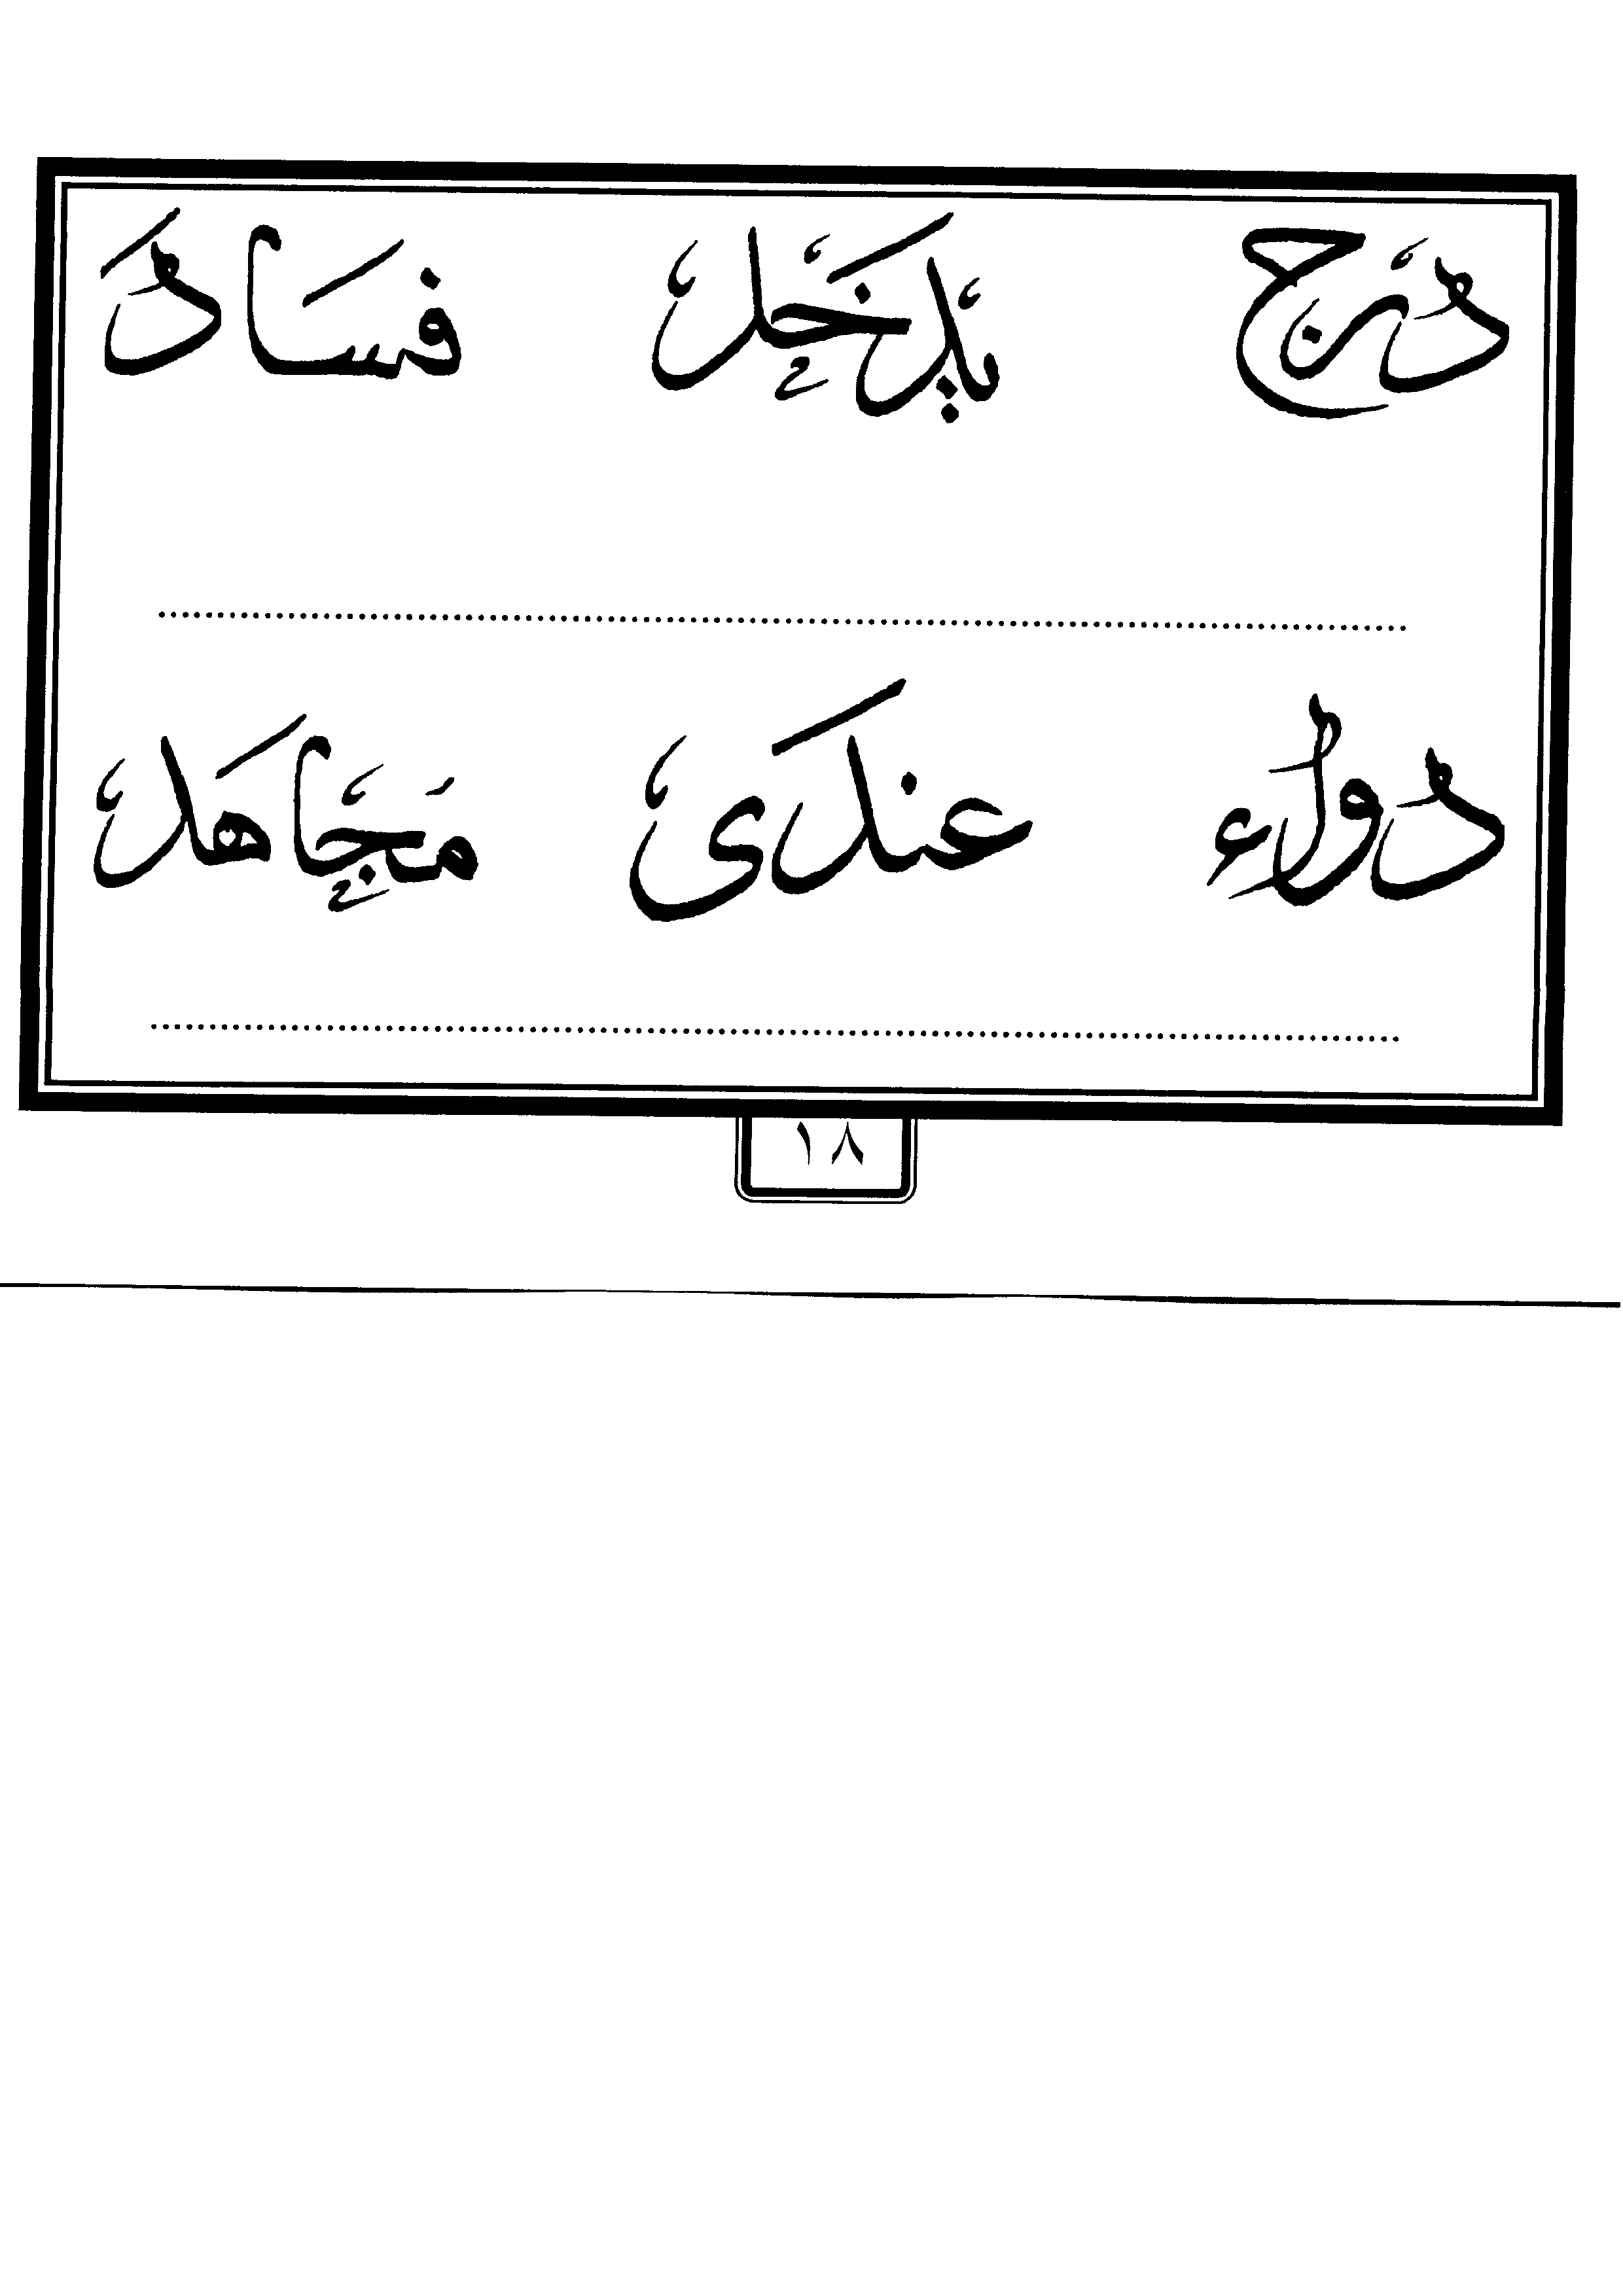 درج يدخل فساد
دواء عندى مجاهد
١٨